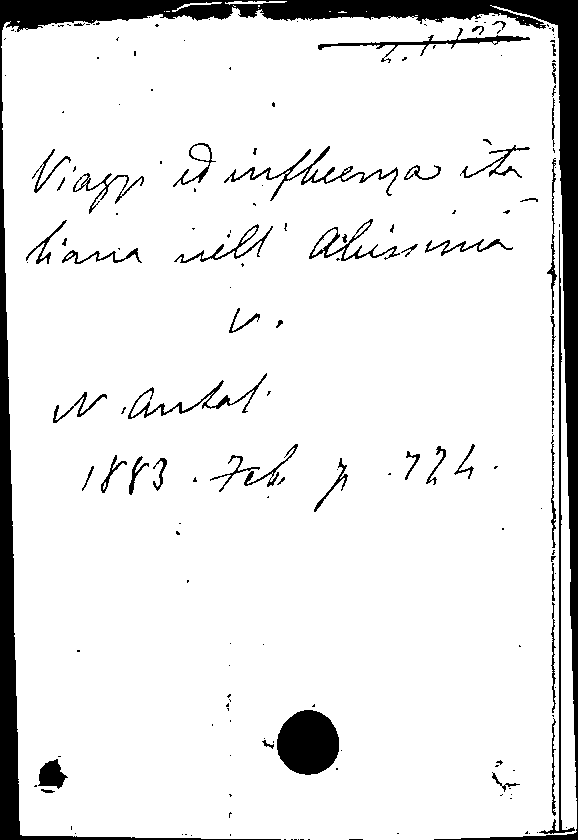 2.1.123
Viaggi ed influenza ita
liana nell' Abissinia
v.
N. Antol.
1883. Feb. p. 724.